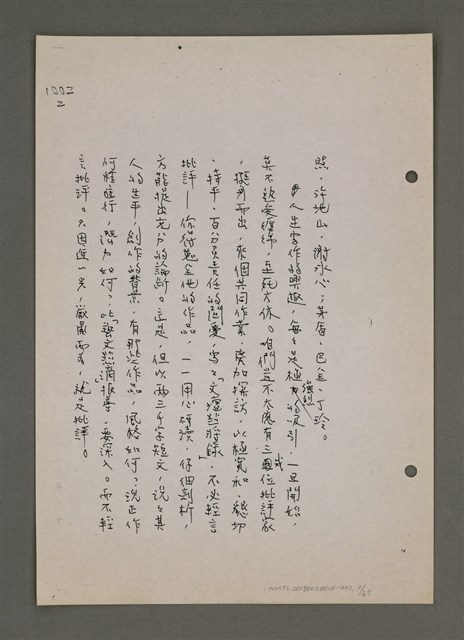 1002
2
照,許地山,謝冰心;茅盾,巴金,丁玲。
人生寫作的興趣,每々是極強烈的吸引,一旦開始,
莫不熱愛纏綿,至死方休。咱們豈不太應有三或四位批評家
,挺身而出,來個共同作業,旁加探訪,以極寬和、懇切
、持平、百分負責任的關愛,寫「文壇點將錄」,不必輕言
批評——你得起全他的作品,一一用心研讀,仔細剖析,
方能提出充分的論斷。這是,但以兩三千字短文,說々其
人的生平,創作的背景,有那些作品,風格如何?況正作
何種進行,潛力如何?比「藝文點滴報導」要深入。而不輕
言批評。只因這一關,嚴肅而言,就是批評。